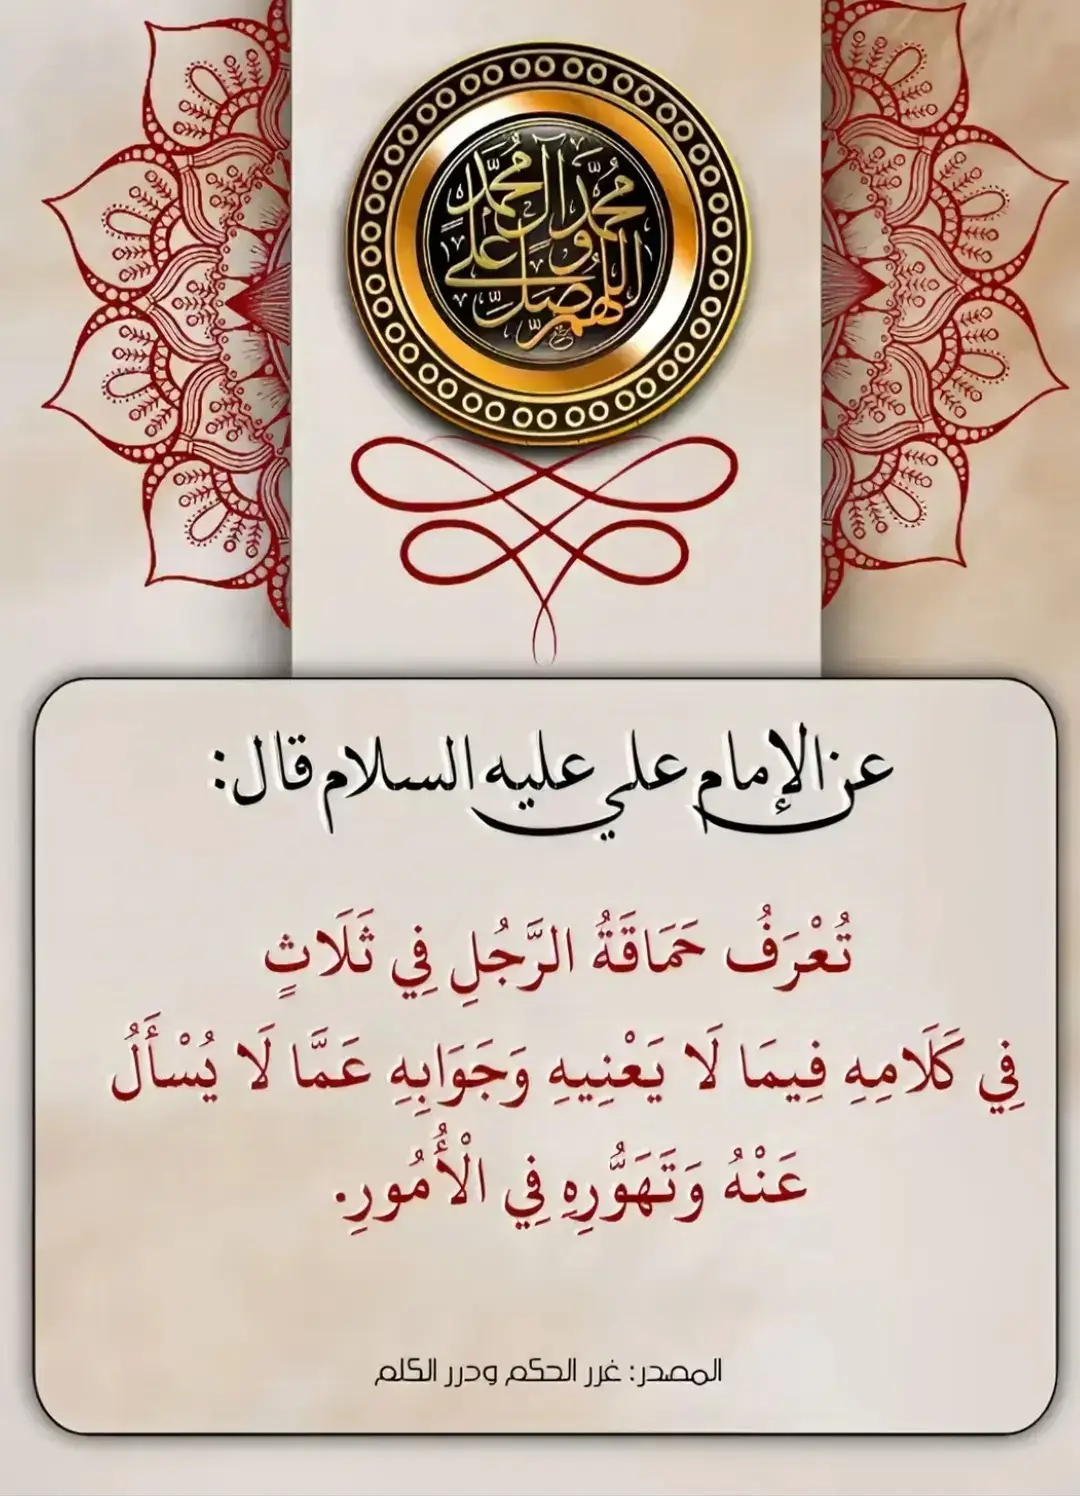 اللهم صل على محمد وآل محمد
عن الإمام علي عليه السلام قال:
تُعْرَفُ حَمَاقَةُ الرَّجُلِ فِي ثَلَاثٍ
فِي كَلَامِهِ فِيمَا لَا يَعْنِيهِ وَجَوَابِهِ عَمَّا لَا يُسْأَلُ
عَنْهُ وَتَهَوُّرِهِ فِي الْأُمُورِ.
المصدر: غرر الحكم ودرر الكلم